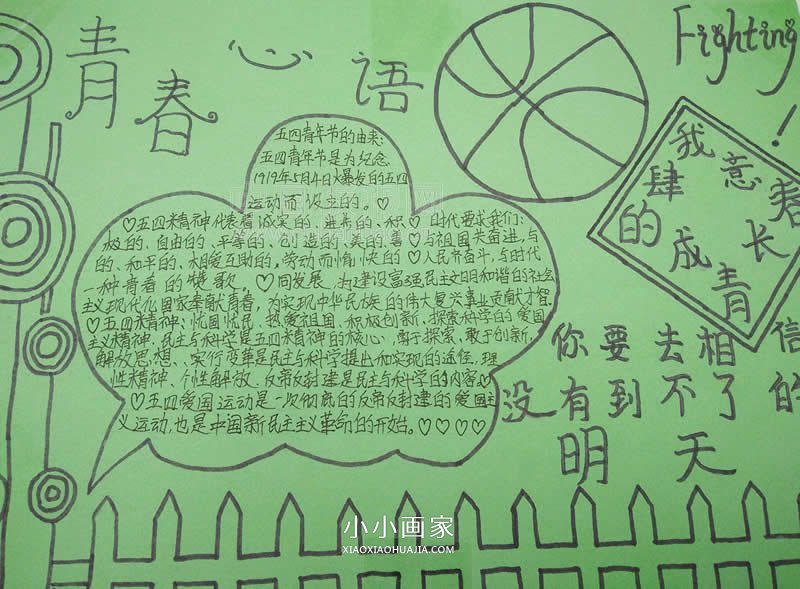 青春心语
Fighting!
五四青年节的由来:
五四青年节是为纪念
1919年5月4日爆发的五四
运动而设立的。♡
♡五四精神代表着诚实的、进步的、积 ♡时代要求我们:
极的、自由的、平等的、创造的、美的、善 ♡与祖国共奋进,与
的、和平的、相爱互助的,劳动而愉快的 ♡人民共奋斗,与时代
一种青春的赞歌。♡同发展,为建设富强民主文明和谐的社会
主义现代化国家奉献青春,为实现中华民族的伟大复兴事业贡献才智.
♡五四精神:忧国忧民、热爱祖国、积极创新、探索科学的爱国
主义精神、民主与科学是五四精神的核心,勇于探索、敢于创新、
解放思想、实行变革是民主与科学提出和实现的途径.理
性精神、个性解放、反帝反封建是民主与科学的内容♡
♡五四爱国运动是一次彻底的反帝反封建的爱国主
义运动,也是中国新民主主义革命的开始。♡♡♡♡
我意春
肆 长
的成青
你要去相信
没有到不了的
明天
小小画家
XIAOXIAOHUAJIA.COM